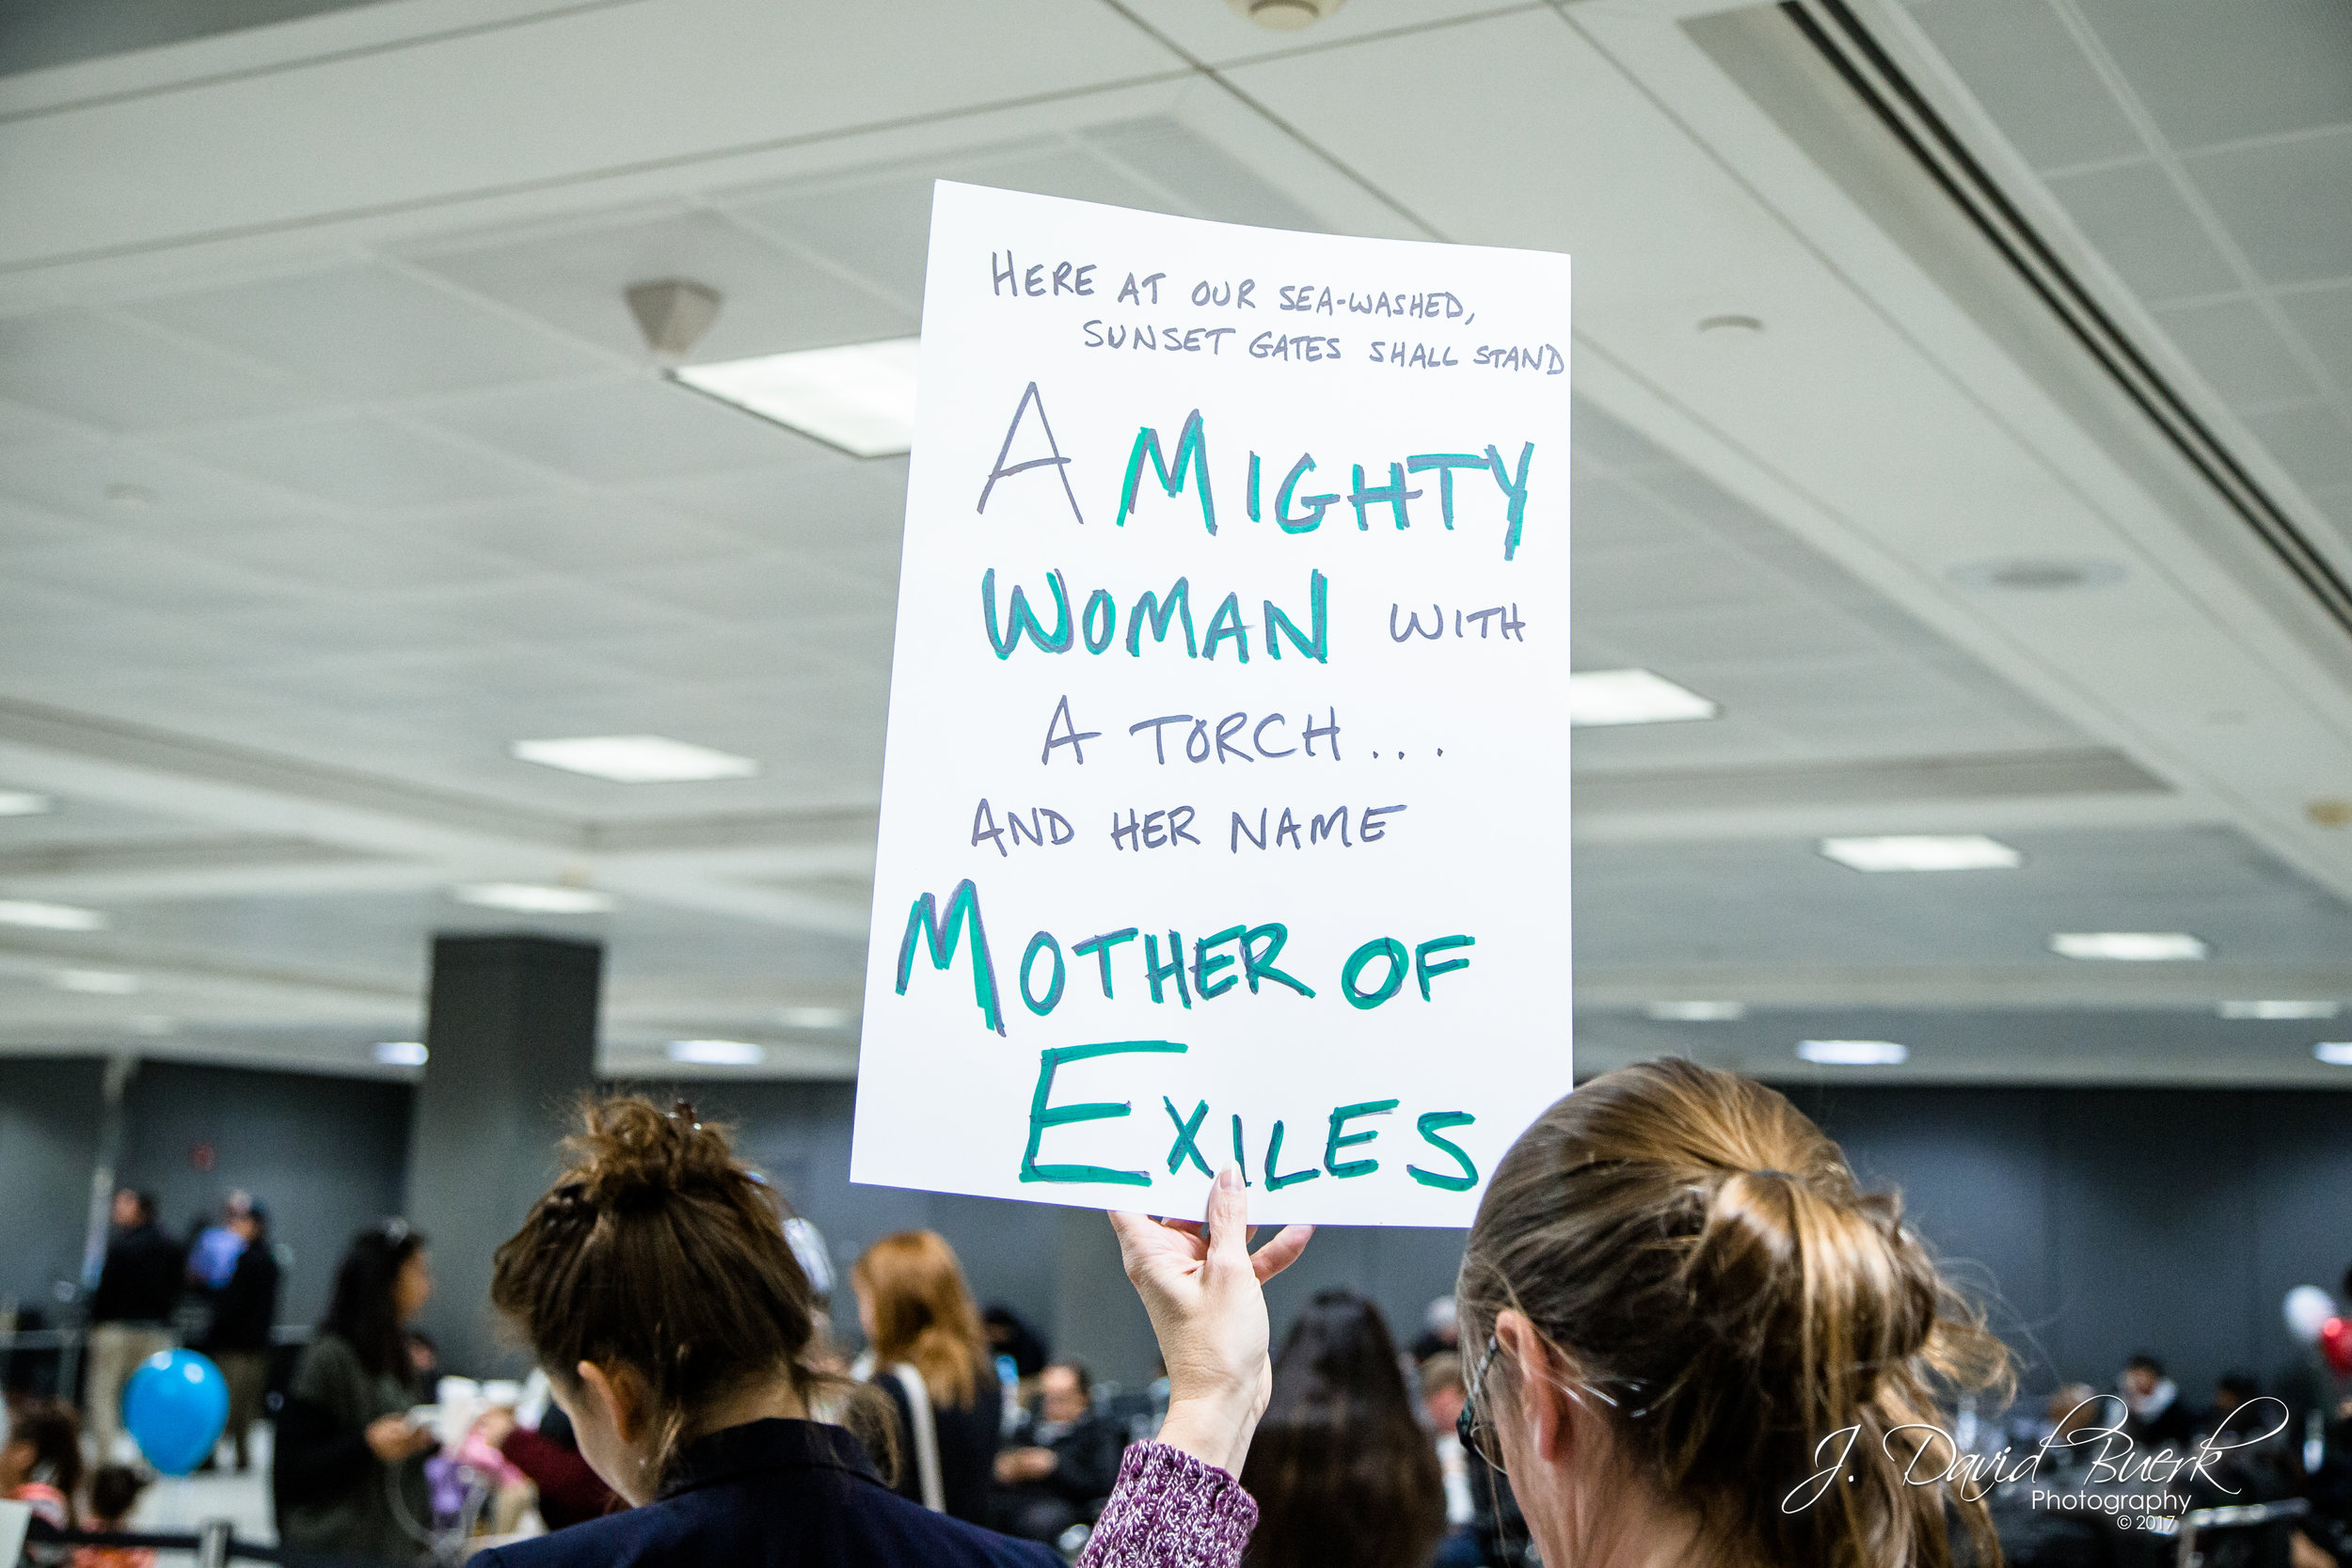 HERE AT OUR SEA-WASHED,
SUNSET GATES SHALL STAND
A MIGHTY
WOMAN WITH
A TORCH...
AND HER NAME
MOTHER OF
EXILES
J. David Buerk
Photography
© 2017